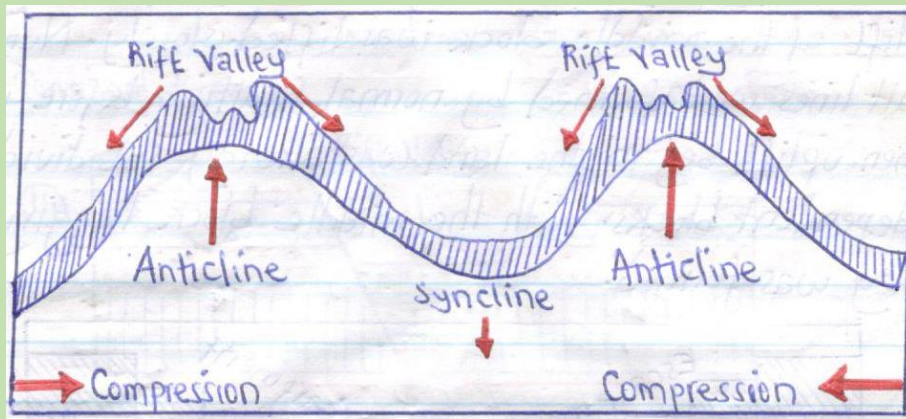 Rift Valley
Rift Valley
Anticline
Anticline
Syncline
Compression
Compression